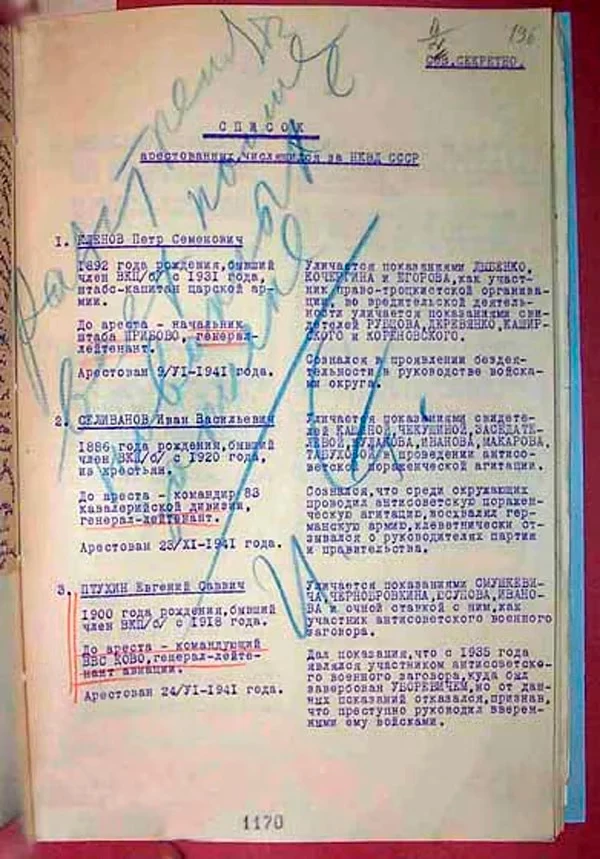 136
СОВ.СЕКРЕТНО.
расстрелять
всех поиме
нованных
в списке
И. Ст.
СПИСОК
арестованных, числящихся за НКВД СССР
1. КЛЕНОВ Петр Семенович
1892 года рождения, бывший
член ВКП/б/ с 1931 года,
штабс-капитан царской ар-
мии.
До ареста - начальник
штаба ПРИБОВО, генерал-
лейтенант.
Арестован 9/VI-1941 года.
Уличается показаниями ДЫБЕНКО,
КОЧЕРГИНА и ЕГОРОВА, как участ-
ник право-троцкистской организа-
ции, во вредительской деятель-
ности уличается показаниями сви-
детелей РУБЦОВА, ДЕРЕВЯНКО, КАШИР-
СКОГО и КОРЕНОВСКОГО.
Сознался в проявлении бездея-
тельности в руководстве войска-
ми округа.
2. СЕЛИВАНОВ Иван Васильевич
1886 года рождения, бывший
член ВКП/б/ с 1920 года,
из крестьян.
До ареста - командир 83
кавалерийской дивизии,
генерал-лейтенант.
Арестован 23/XI-1941 года.
Уличается показаниями свидете-
лей КАЛИНОЙ, ЧЕКУШИНОЙ, ЗАСЕДАТЕ-
ЛЕВОЙ, ГУДКОВА, ИВАНОВА, МАКАРОВА,
ТАБУХОВОЙ в проведении антисо-
ветской пораженческой агитации.
Сознался, что среди окружающих
проводил антисоветскую поражен-
ческую агитацию, восхвалял гер-
манскую армию, клеветнически от-
зывался о руководителях партии
и правительства.
3. ПТУХИН Евгений Саввич
1900 года рождения, бывший
член ВКП/б/ с 1918 года.
До ареста - командующий
ВВС КОВО, генерал-лейте-
нант авиации.
Арестован 24/VI-1941 года.
Уличается показаниями СМУШКЕВИ-
ЧА, ЧЕРНОБРОВКИНА, ЮСУПОВА, ИВАНО-
ВА и очной ставкой с ним, как
участник антисоветского военного
заговора.
Дал показания, что с 1935 года
являлся участником антисоветско-
го военного заговора, куда был
завербован УБОРЕВИЧЕМ, но от дан-
ных показаний отказался, признав,
что преступно руководил вверен-
ными ему войсками.
1170